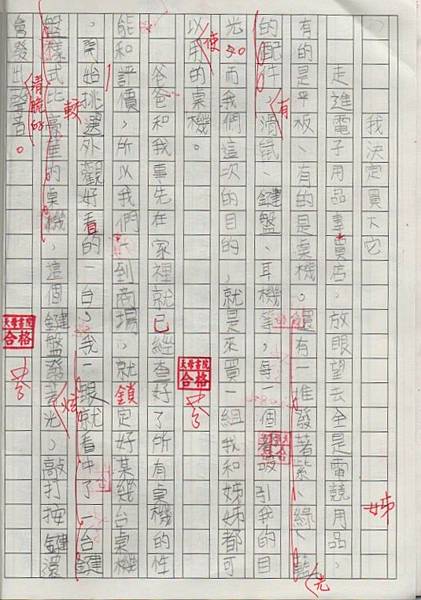 我決定買下它
走進電子用品專賣店,放眼望去全是電競用品,
有的是平板、有的是桌機,還有一堆發著紫、綠、藍光
的配件,有滑鼠、鍵盤、耳機等,每一個都吸引我的目
光。而我們這次的目的,就是來買一組我和姊姊都可
以使用的桌機。
爸爸和我事先在家裡就已經查好了所有桌機的性
能和評價,所以我們一到商場,就鎖定好某幾台桌機
,開始挑選外觀較好看的一台,我一眼就看中了一台鍵
盤樣式的桌機,這個鍵盤發著炫光,敲打按鍵還
會發出聲音。
清脆的
姊
合格
合格
合格